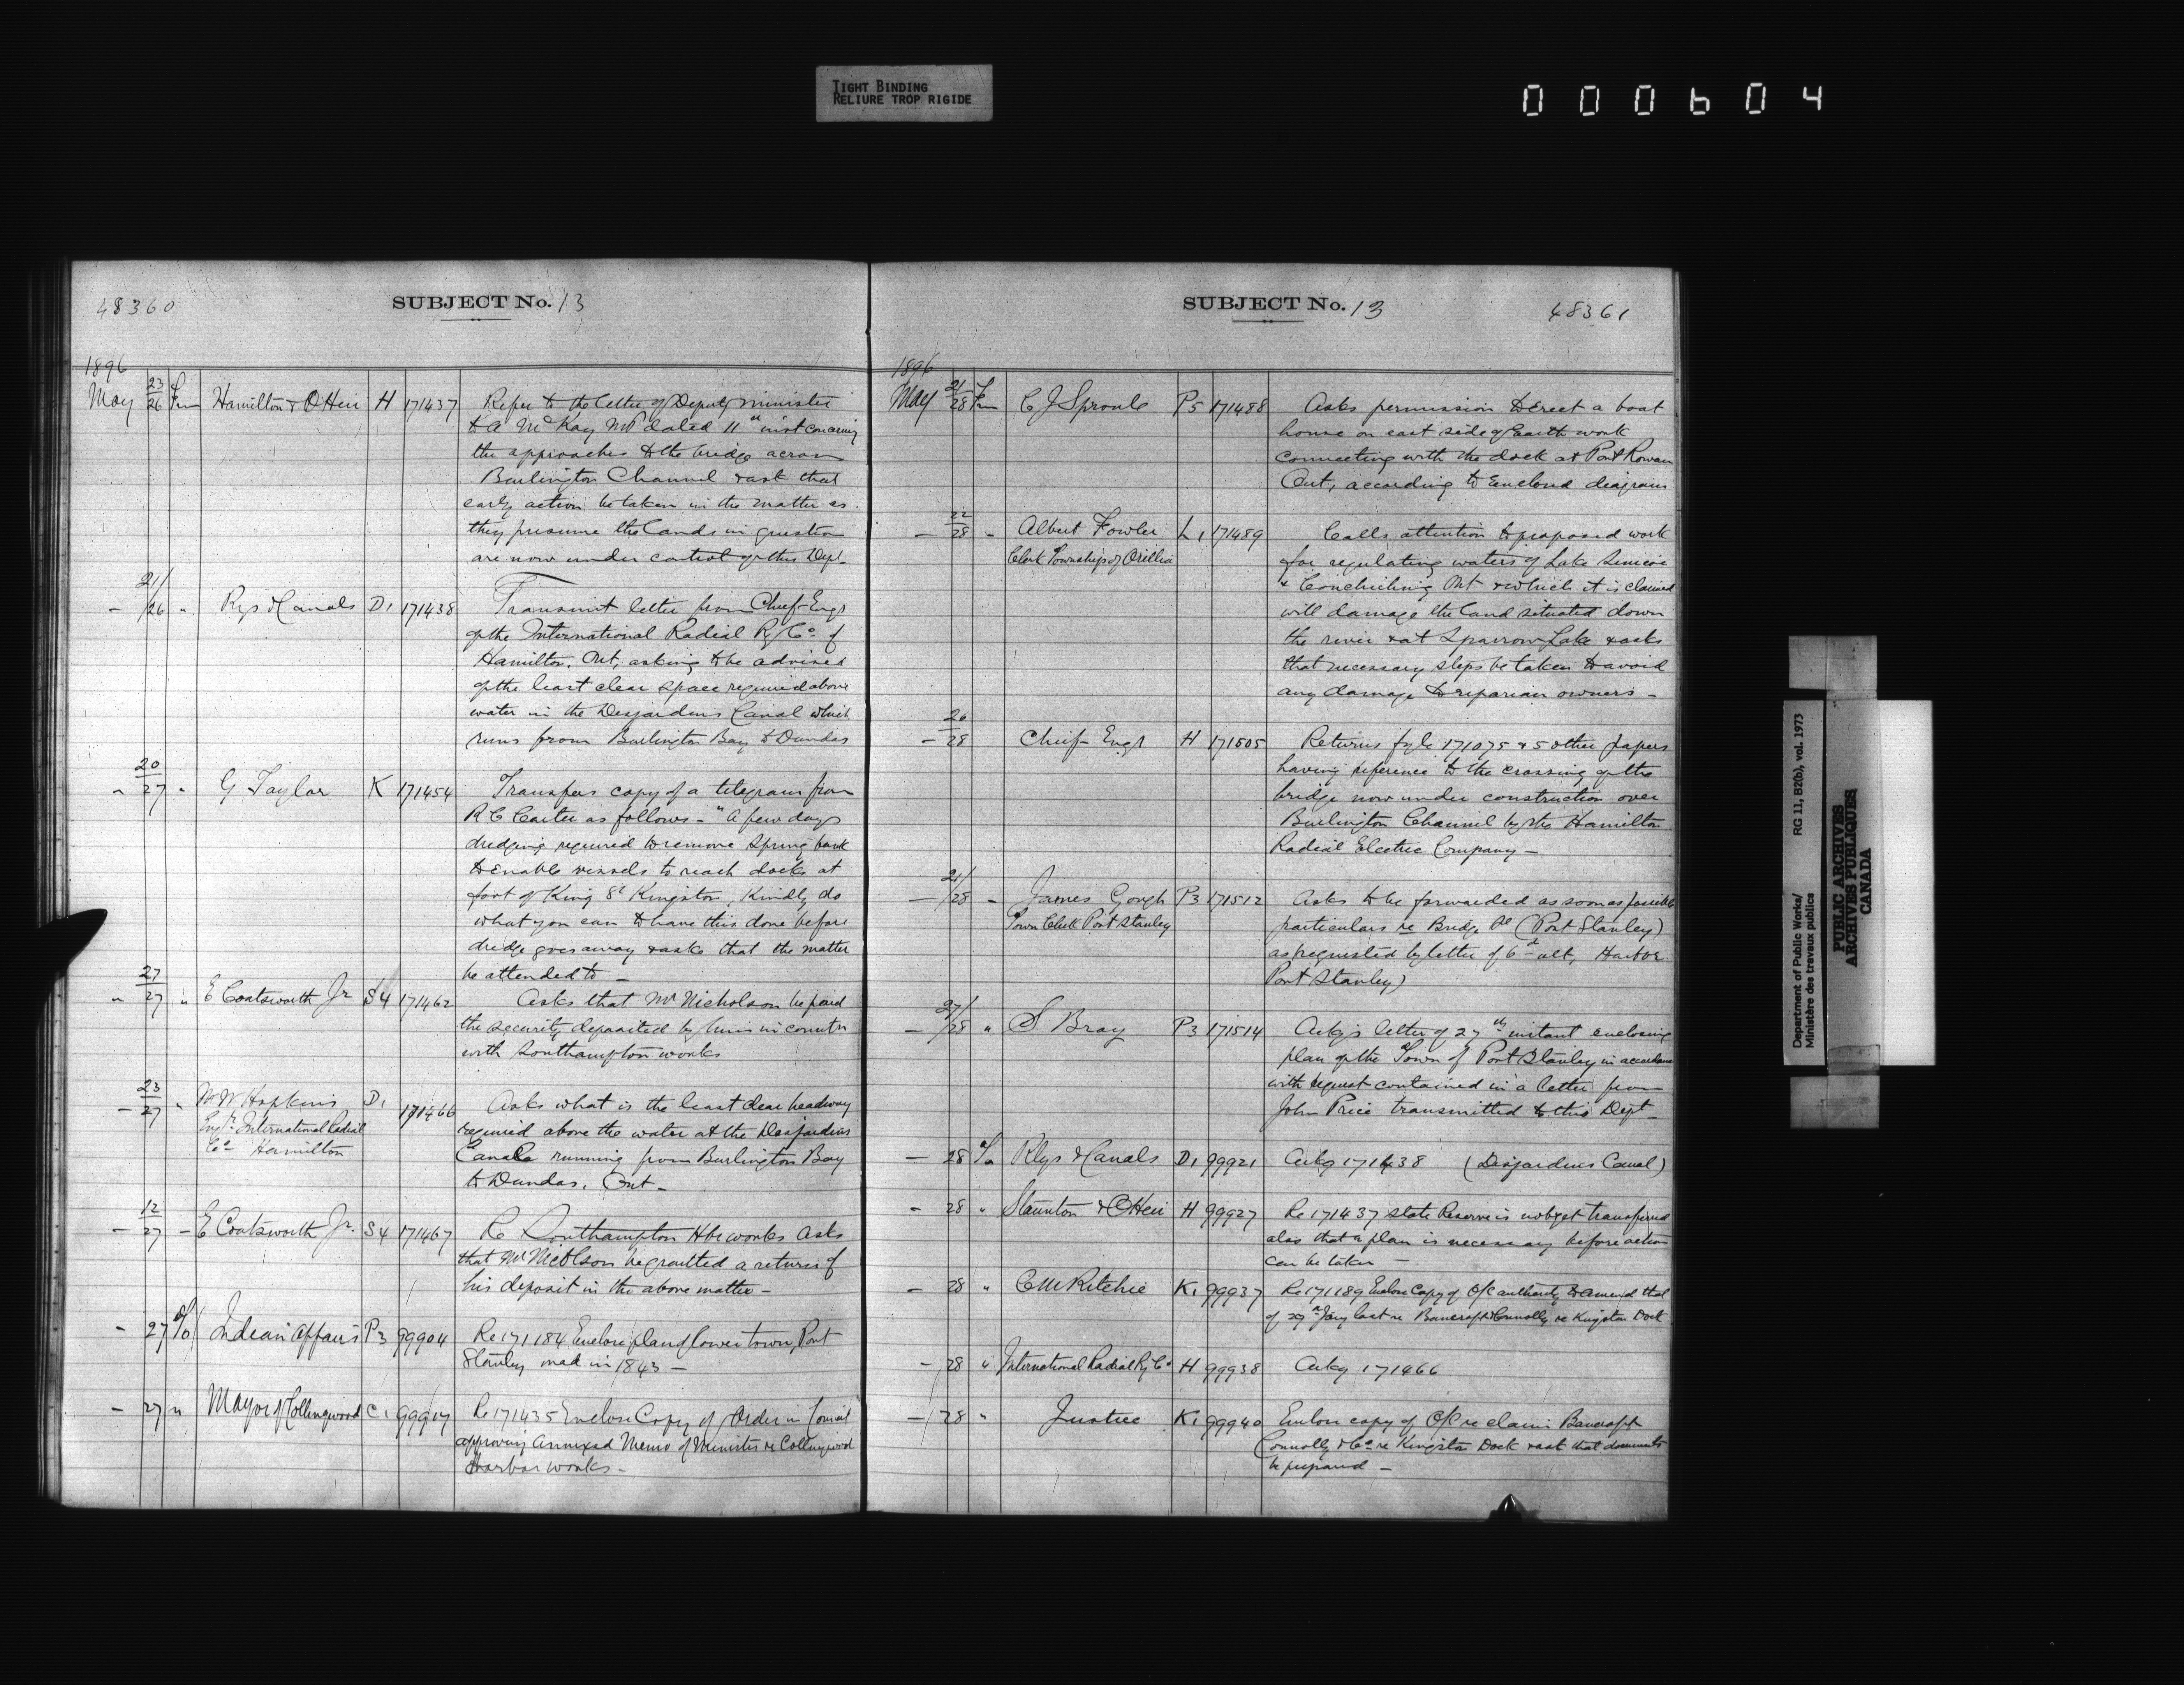 TIGHT BINDING
RELIURE TROP RIGIDE
000604
48360
SUBJECT No. 13
1896
May 23/26 Fm Hamilton & OHeir H 171437 Refer to the letter of Deputy Minister
to A McKay MP dated 11th inst concerning
the approaches to the bridge across
Burlington Channel & ask that
early action be taken in the matter as
they presume the lands in question
are now under control of this Dept
- 21/26 " Rys & Canals D1 171438 Transmit letter from Chief Engr
of the International Radial Ry Co. of
Hamilton, Ont, asking to be advised
of the least clear space required above
water in the Desjardins Canal which
runs from Burlington Bay to Dundas
" 20/27 " G Taylor K 171454 Transfers copy of a telegram from
R C Carter as follows - "A few days
dredging required to remove Spring bank
to enable vessels to reach docks at
foot of King St Kingston, Kindly do
what you can to have this done before
dredge goes away & asks that the matter
be attended to -
" 27/27 " E Coatsworth Jr S4 171462 Asks that Mr Nicholson be paid
the security deposited by him in connctn
with Southampton works
- 23/27 " W W Hopkins D1 171466 Asks what is the least clear headway
Engr. International Radial required above the water at the Desjardins
Co - Hamilton Canal running from Burlington Bay
to Dundas, Ont -
- 12/27 - E Coatsworth Jr. S4 171467 Re Southampton Hbr works Asks
that Mr Nicholson be granted a return of
his deposit in the above matter -
- 27 To Indian Affairs P3 99904 Re 171184 Enclose plan of lower town, Port
Stanley mad in 1843 -
- 27 " Mayor of Collingwood C1 99917 Re 171435 Enclose Copy of Order in Council
approving annexed Memo of Minister re Collingwood
Harbor works -
SUBJECT No. 13
48361
1896
May 21/28 Fm C J Sproule P5 171488 Asks permission to Erect a boat
house on east side of Earth work
connecting with the dock at Port Rowan
Ont, according to Enclosed diagram
- 22/28 - Albert Fowler L1 171489 Calls attention to proposed work
Clerk Township of Orillia for regulating waters of Lake Simcoe
& Couchiching Ont & which it is claimed
will damage the land situated down
the river & at Sparrow Lake & asks
that necessary steps be taken to avoid
any damage to riparian owners -
- 26/28 Chief Engr H 171505 Returns fyle 171075 & 5 other papers
having reference to the crossing of the
bridge now under construction over
Burlington Channel by the Hamilton
Radial Electric Company -
- 21/28 - James Gough P3 171512 Asks to be forwarded as soon as possible
Town Clerk Port Stanley particulars re Bridge St (Port Stanley)
as requested by letter of 6th ult, Harbor
Port Stanley)
- 27/28 " S Bray P3 171514 Ackgs letter of 27th instant enclosing
plan of the Town of Port Stanley in accordance
with request contained in a letter from
John Price transmitted to this Dept -
- 28 To Rlys & Canals D1 99921 Ackg 171438 (Desjardins Canal)
- 28 " Staunton & OHeir H 99927 Re 171437 State Reserve is not yet transferred
also that a plan is necessary before action
can be taken -
- 28 " C M Ritchie K1 99937 Re 171189 Enclose Copy of O/C authority to amend that
of 29th Jany last re Bancroft & Connolly re Kingston Dock
- 28 " International Radial Ry Co. H 99938 Ackg 171466
- 28 " Justice K1 99940 Enclose copy of O/C re claim Bancroft
Connolly & Co. re Kingston Dock & ask that documents
be prepared -
Department of Public Works/ RG 11, B2(b), vol. 1973
Ministère des travaux publics
PUBLIC ARCHIVES
ARCHIVES PUBLIQUES
CANADA